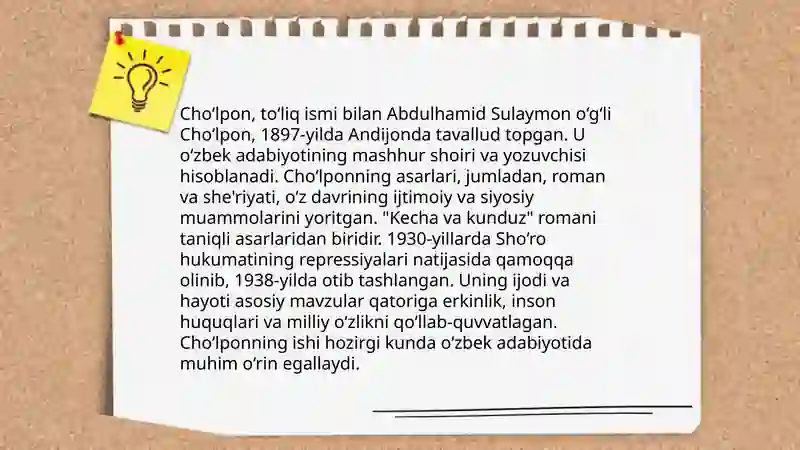 Cho‘lpon, to‘liq ismi bilan Abdulhamid Sulaymon o‘g‘li
Cho‘lpon, 1897-yilda Andijonda tavallud topgan. U
o‘zbek adabiyotining mashhur shoiri va yozuvchisi
hisoblanadi. Cho‘lponning asarlari, jumladan, roman
va she'riyati, o‘z davrining ijtimoiy va siyosiy
muammolarini yoritgan. "Kecha va kunduz" romani
taniqli asarlaridan biridir. 1930-yillarda Sho‘ro
hukumatining repressiyalari natijasida qamoqqa
olinib, 1938-yilda otib tashlangan. Uning ijodi va
hayoti asosiy mavzular qatoriga erkinlik, inson
huquqlari va milliy o‘zlikni qo‘llab-quvvatlagan.
Cho‘lponning ishi hozirgi kunda o‘zbek adabiyotida
muhim o‘rin egallaydi.